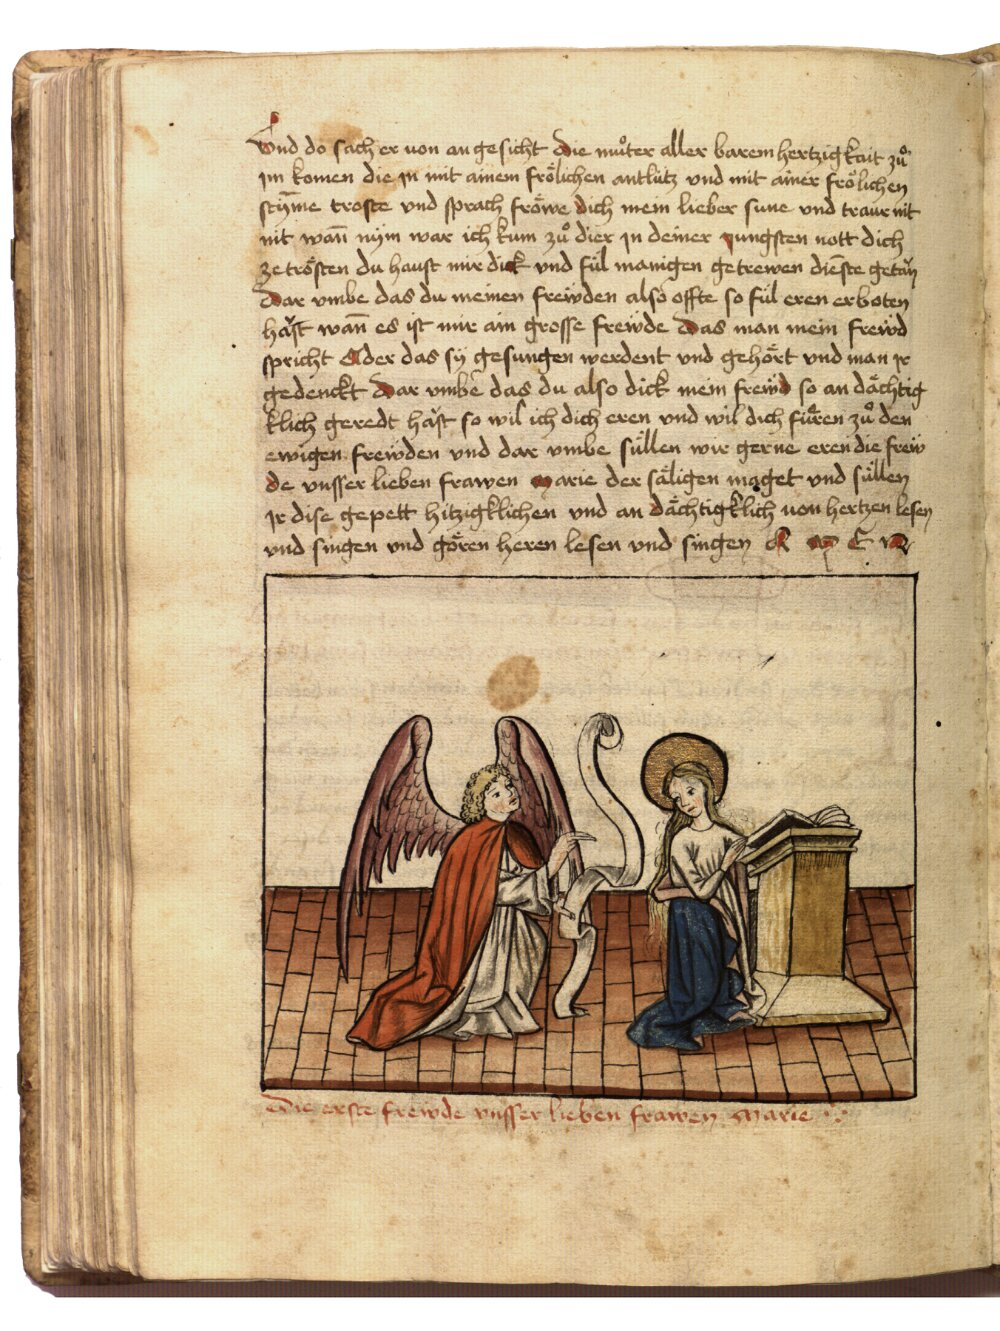 Vnd do sach er von angesicht die můter aller baremhertzigkait zů
im komen die jn mit ainem frölichen antlütz vnd mit ainer frölichen
stÿm̄e troste vnd sprach fröwe dich mein lieber sune vnd traur nit
nit wan̄ nÿm war ich kum zů dier jn deiner jungsten nott dich
ze trösten du haust mir dick vnd fúl manigen getrewen dienste getän
Dar vmbe das du meinen frewden also offte so fúl eren erboten
häst wan̄ es ist mir ain grosse frewde Das man mein frewd
spricht Oder das sÿ gesungen werdent vnd gehört vnd man jr
gedenckt Dar vmbe das du also dick mein frewd so an dächtig
klich geredt häst so wil ich dich eren vnd wil dich füren zů den
ewigen frewden vnd dar vmbe süllen wir gerne eren die frew
de vnsser lieben frawen Marie der säligen maget vnd süllen
jr dise gepett hitzigklichen vnd an dächtigklich von hertzen lesen
vnd singen vnd gören heren lesen vnd singen A M E N
Die erste frewde vnsser lieben frawen Marie